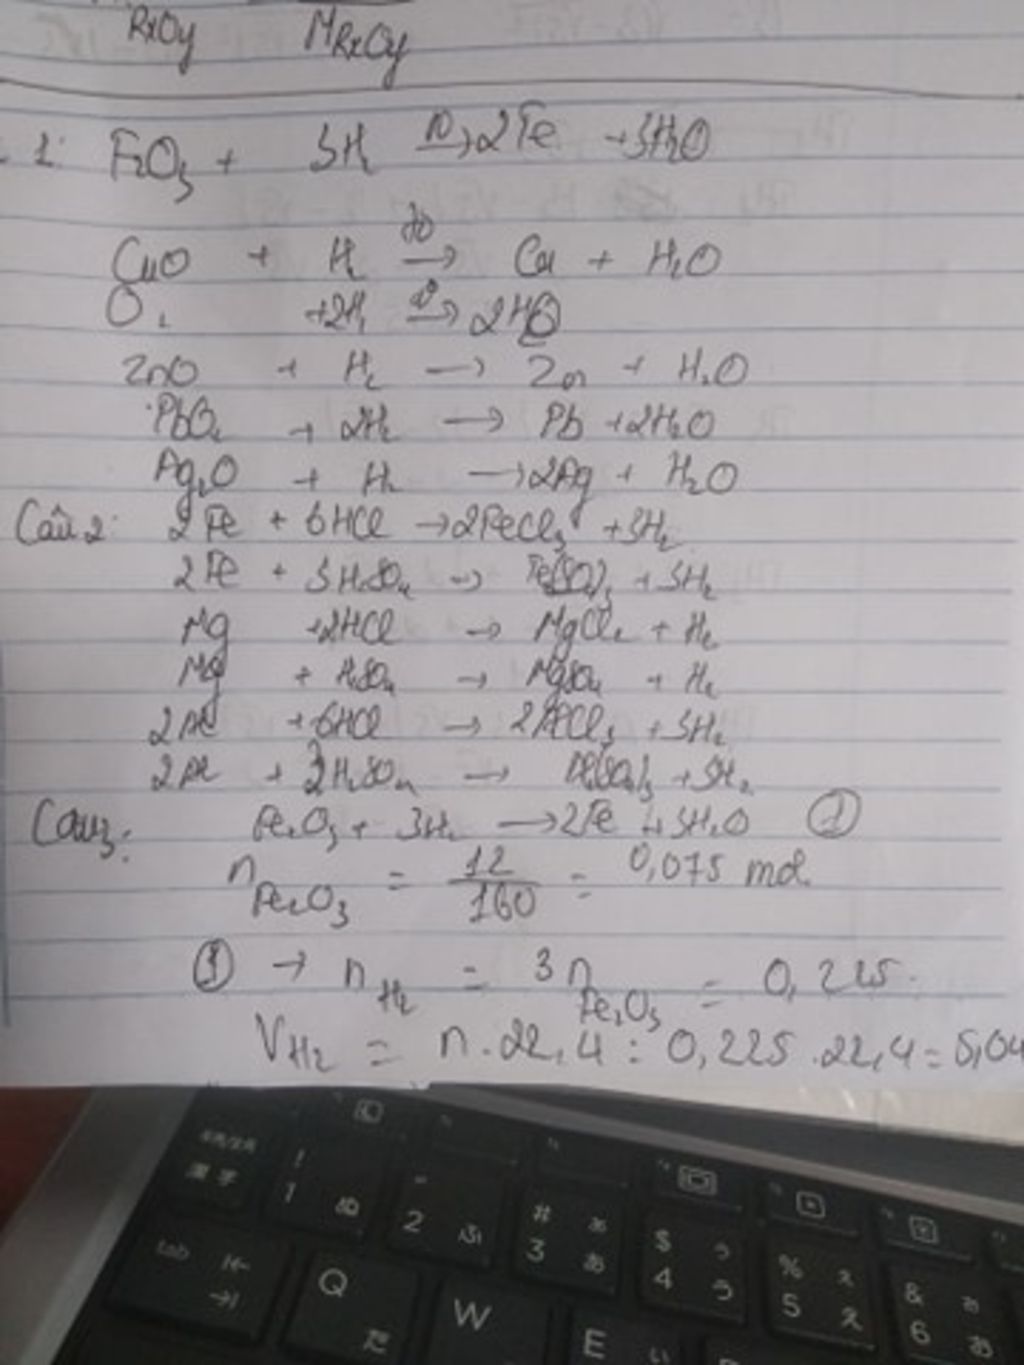 RxOy MRxOy
1: Fe2O3 + 3H2 t0→ 2Fe +3H2O
CuO + H2 t0→ Cu + H2O
O2 +2H2 t0→ 2H2O
ZnO + H2 → Zn + H2O
PbO2 + 2H2 → Pb +2H2O
Ag2O + H2 → 2Ag + H2O
Câu 2: 2Fe + 6HCl → 2FeCl3 +3H2
2Fe + 3H2SO4 → Fe2(SO4)3 +3H2
Mg +2HCl → MgCl2 + H2
Mg + H2SO4 → MgSO4 + H2
2Al +6HCl → 2AlCl3 +3H2
2Al + 3H2SO4 → Al2(SO4)3 +3H2
Câu 3: Fe2O3 + 3H2 → 2Fe + 3H2O (1)
nFe2O3 = 12/160 = 0,075 mol
(1) → nH2 = 3nFe2O3 = 0,225
VH2 = n.22,4 = 0,225.22,4 = 5,04
半角/全角
漢字
! 1 ぬ
" 2 ふ
# 3 ぁ あ
$ 4 ぅ う
% 5 ぇ え
& 6 ぉ お
tab
Q た
W
E い